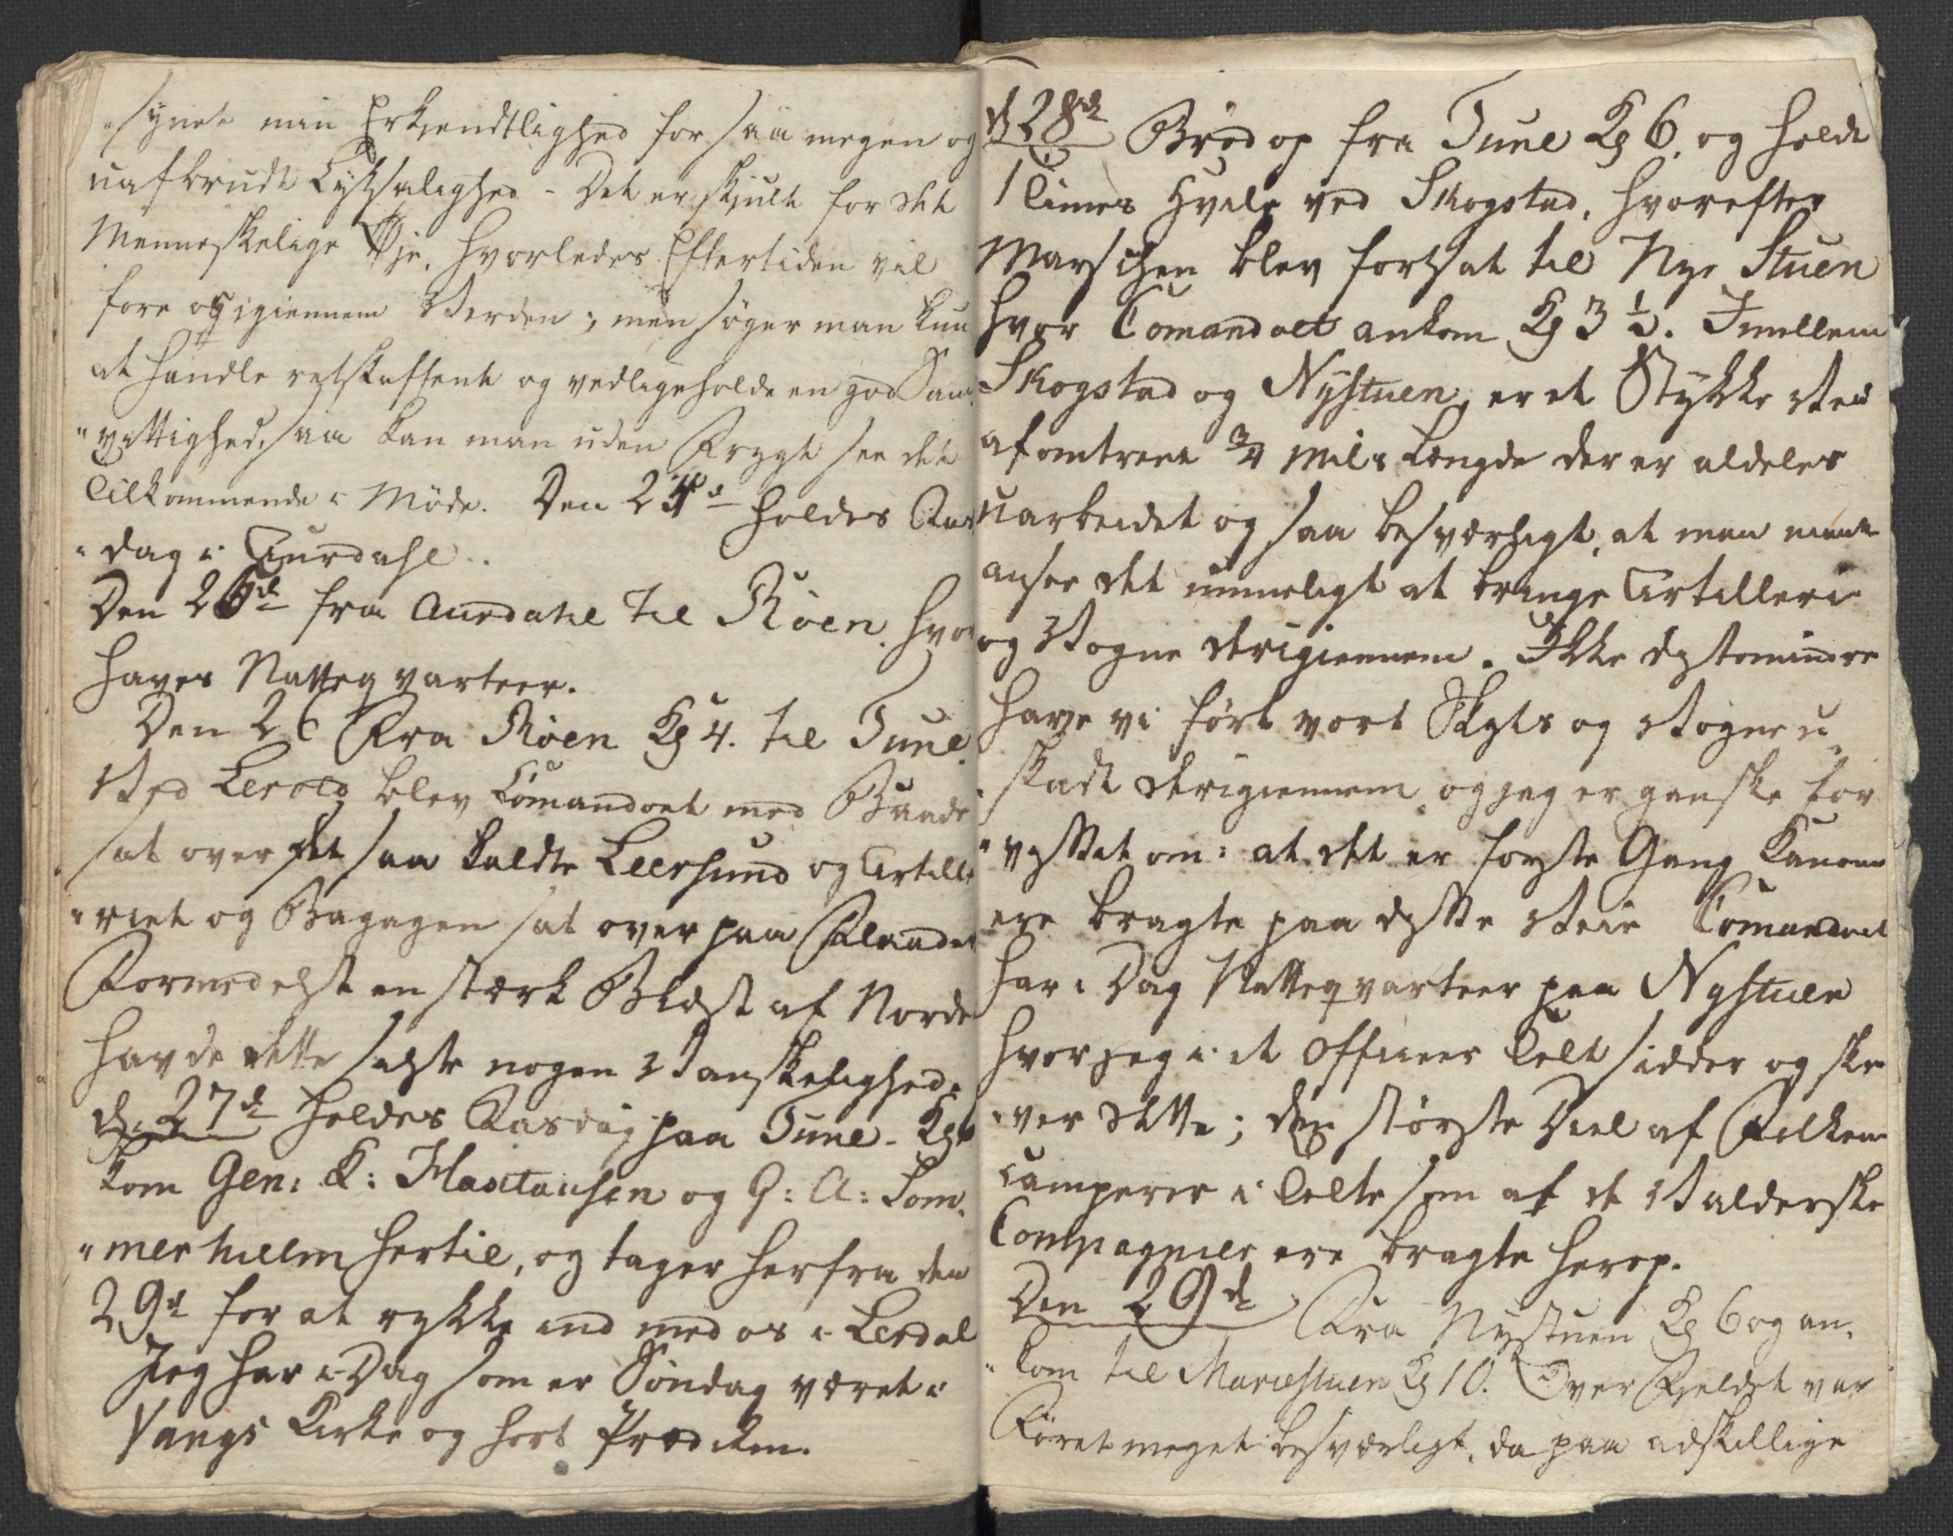 "synet min Erkjendtlighed for saa megen og
uafbrudt Lyksalighed - Det er skjult for det
Menneskelige Øje, hvorledes Eftertiden vil
føre os igiennem Verden; men søger man kun
at handle retskaffent og vedligeholde en god Sam,
"vittighed, saa kan man uden Frygt see det
Tilkommende i Møde. Den 25d holdes Ras
"dag i Aurdahl.
Den 26d fra Aurdahl til Röen, hvor
haves Natteqvarteer.
Den 26 Fra Röen Kl 4. til Tune.
Ved Leroid blev Comandoet med Baade
sat over det saa kaldte Leersund og Artille
"riet og Bagagen sat over paa Flaader
Formedelst en stærk Blæst af Norde
havde dette sidste nogen Vanskelighed.
d. 27d holdes Rasdag paa Tune. Kl 6
kom Gen: K: Haxtausen og G: A: Som,
"merhielm hertil, og tager herfra den
29d for at rykke ind med os i Lerdal
Jeg har i Dag som er Söndag været i
Vangs Kirke og hört Prædiken.
d 28d Bröd op fra Tune Kl 6. og holdt
1 Times Hvile ved Skogstad, hvorefter
Marschen blev fortsat til Nye Stuen
hvor Comandoet ankom Kl 3 ½. Imellem
Skogstad og Nystuen, er et Stykke Vei
af omtrent ¾ Mils Længde der er aldeles
uarbeidet og saa besværligt, at man maatte
ansee det umueligt at bringe Artillerie
og Vogne derigiennem. Ikke destomindre
have vi fört vort Skyts og Vogne u,
"skadt derigiennem og jeg er ganske for
"visset om: at det er første Gang Kanoner
ere bragte paa dette Veie Comandoet
har i Dag Natteqvarteer paa Nystuen
hvor jeg i et Officeer Telt sidder og skri
"ver dette; den störste Deel af Folkene
camperer i Telte som af de Valderske
Compagnier ere bragte herop.
Den 29d Fra Nystuen Kl 6 og an,
"kom til Mariestuen Kl 10. Over Fieldet var
Föret meget besværligt, da paa adskillige